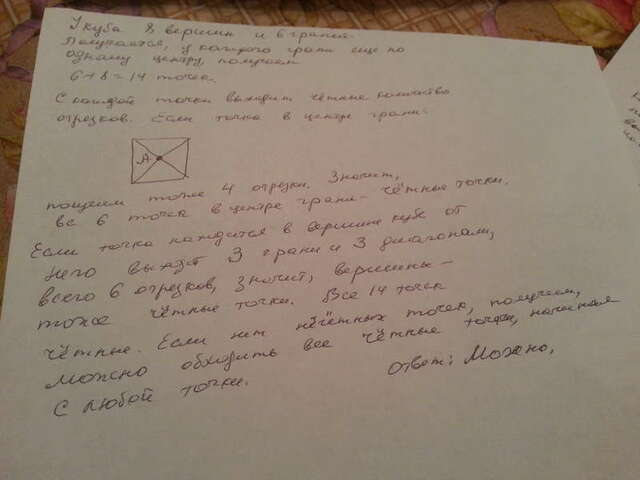 У куба 8 вершин и 6 граней.
Получается, у каждого грани еще по
одному центру, получаем
6+8=14 точек.
С каждой точки выходит чётные количество
отрезков. Если точка в центре грани:
A.
получаем тоже 4 отрезки. Значит,
все 6 точек в центре грани - чётные точки.
Если точка находится в вершине куба от
него выходят 3 грани и 3 диагонали,
всего 6 отрезков, значит, вершины -
тоже чётные точки. Все 14 точек
чётные. Если нет нечётных точек, получаем,
можно обходить все чётные точки, начиная
с любой точки.
Ответ: Можно.